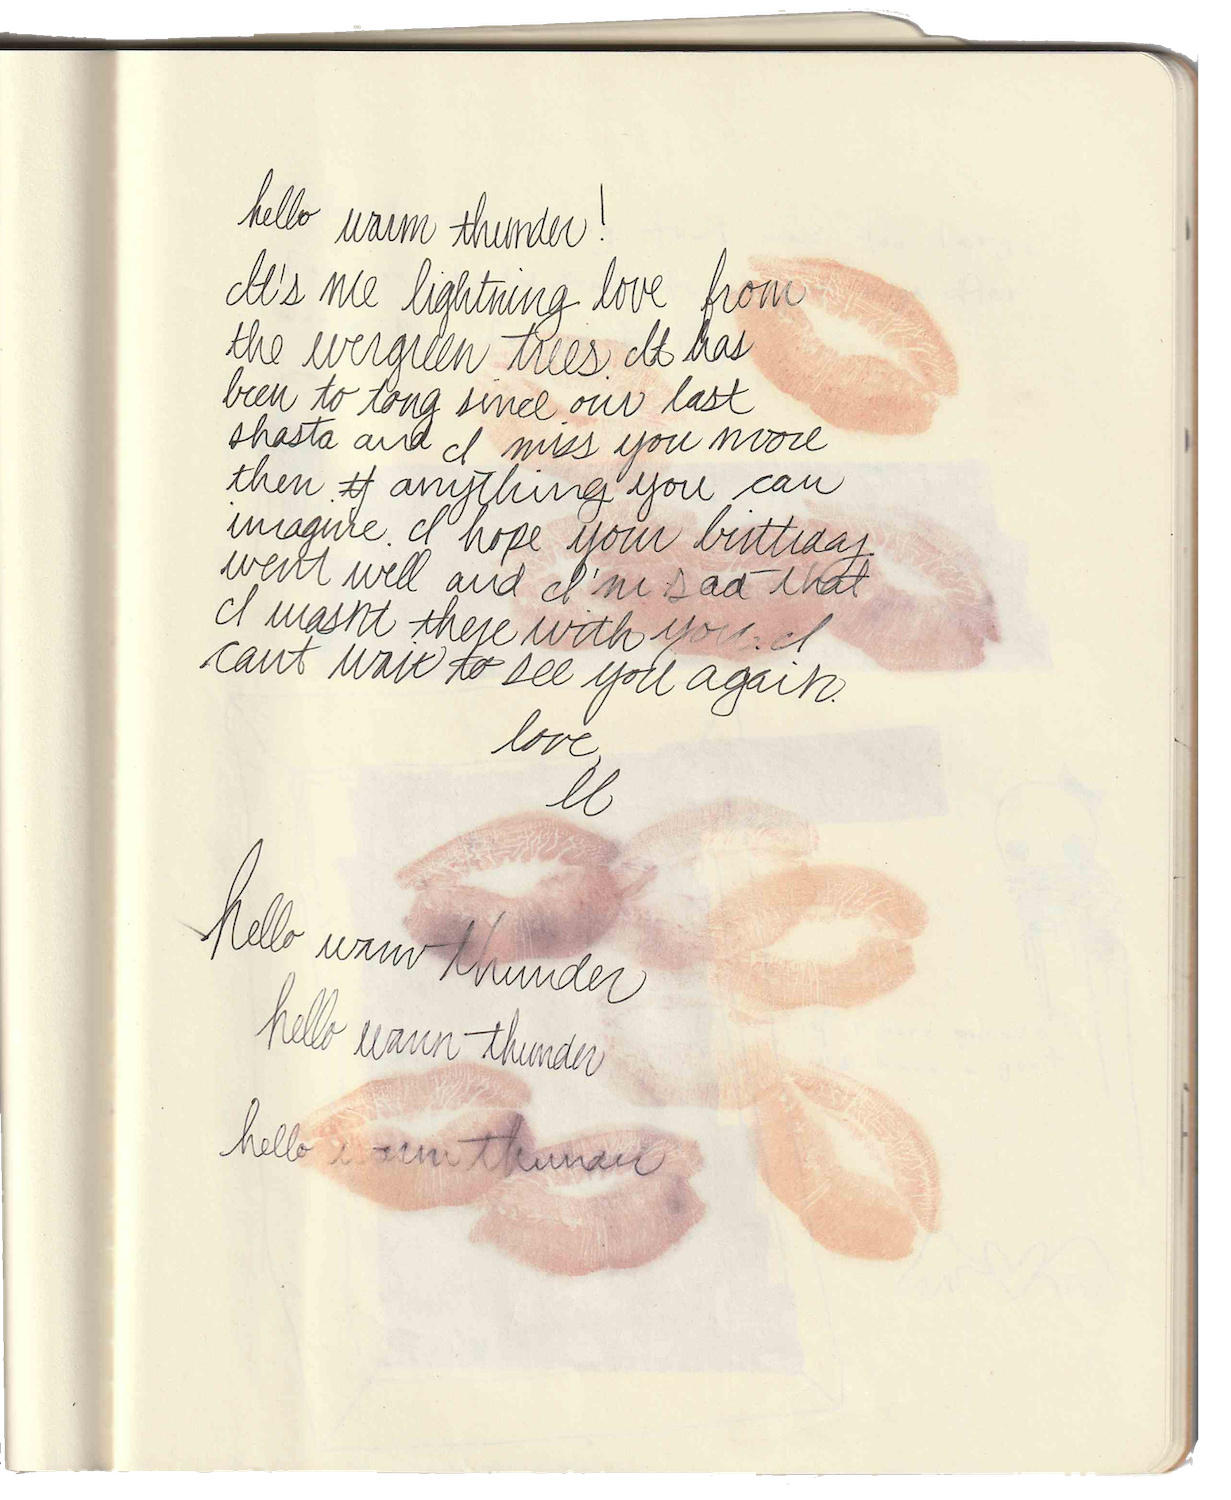 hello warm thunder!
It's me lightning love from
the evergreen trees. It has
been to long since our last
shasta and I miss you more
then anything you can
imagine. I hope your birthday
went well and I'm sad that
I wasnt there with you. I
cant wait to see you again.
love,
ll
hello warm thunder
hello warm thunder
hello warm thunder